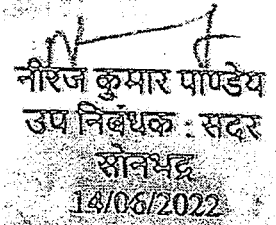 नीरज कुमार पाण्डेय
उप निबंधक : सदर
सोनभद्र
14/06/2022